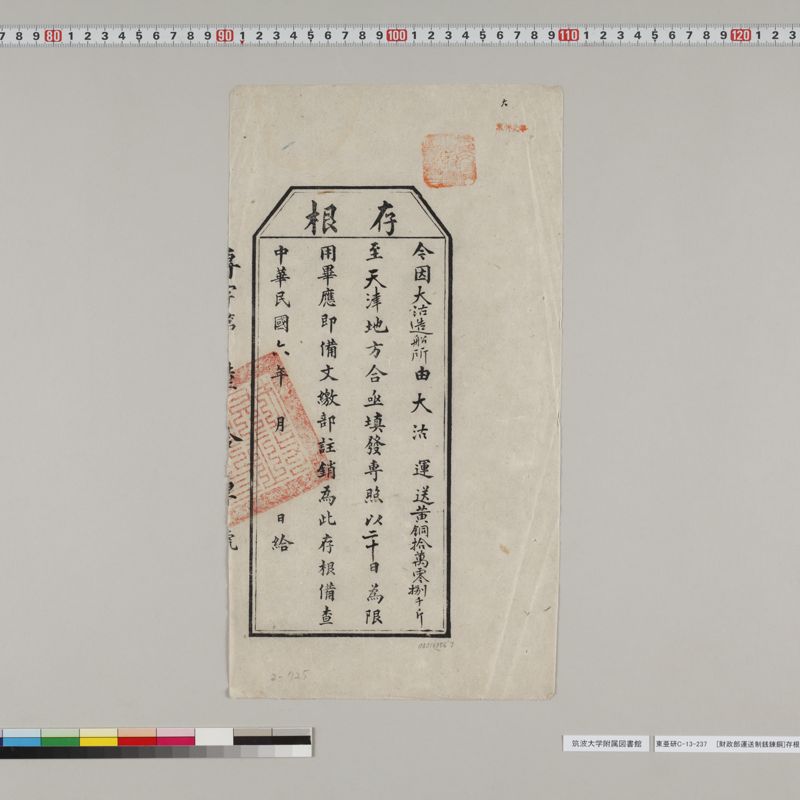 7 8 9 80 1 2 3 4 5 6 7 8 9 90 1 2 3 4 5 6 7 8 9 100 1 2 3 4 5 6 7 8 9 110 1 2 3 4 5 6 7 8 9 120 1 2 3
大
存根
今因大沽造船所由大沽運送黄銅拾萬零捌千斤
至天津地方合亟填發專照以二十日為限
用畢應即備文繳部註銷為此存根備查
中華民國六年 月 日給
2-725
筑波大学附属図書館
東亜研C-13-237 [財政部運送制銭錬銅]存根